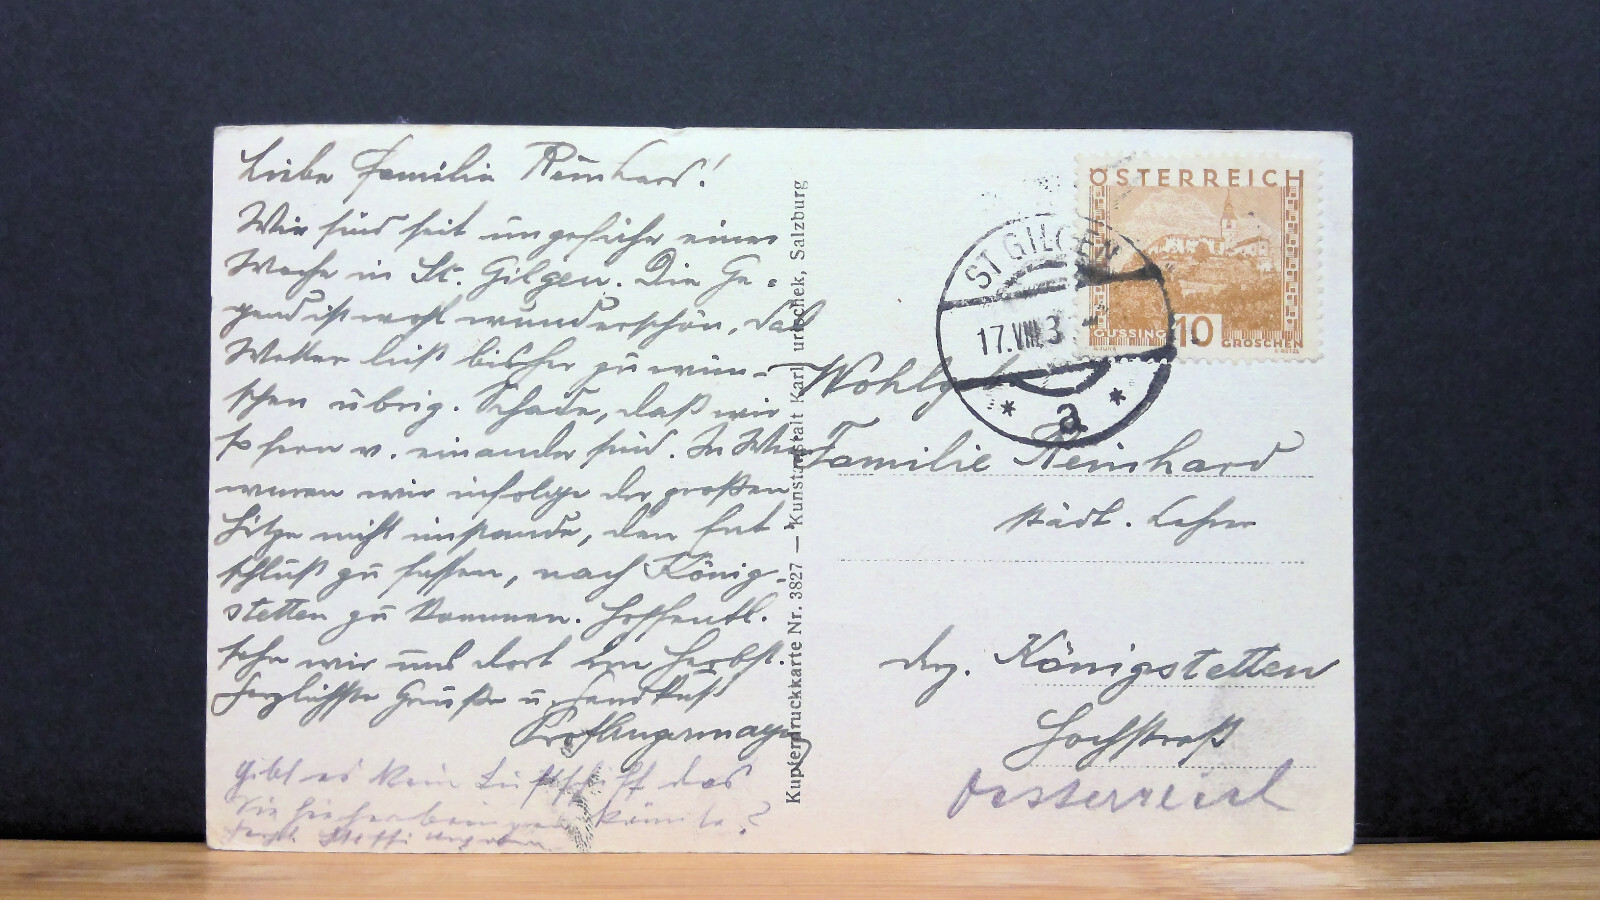 Liebe Familie Reinhard!
Wir sind seit ungefähr einer
Woche in St. Gilgen. Die Ge-
gend ist wohl wunderschön, das
Wetter läßt bisher zu wün-
schen übrig. Schade, daß wir
so fern v. einander sind. In Wien
waren wir infolge der großen
Hitze nicht imstande, den Ent
schluß zu fassen, nach König-
stetten zu kommen. Hoffentl.
sehn wir uns dort im Herbst.
Herzlichste Grüße u. Handkuß
Gibt es kein Luftschiff das
Sie hieher bringen könnte?
Steffi
Kupferdruckkarte Nr. 3827 — Kunstanstalt Karl urischek, Salzburg
ÖSTERREICH
GÜSSING 10 GROSCHEN
ST GILGEN
17.VIII.3
* a *
Wohlgeb
Familie Reinhard
städt. Lehrer
Königstetten
Hochstraß
Oesterreich